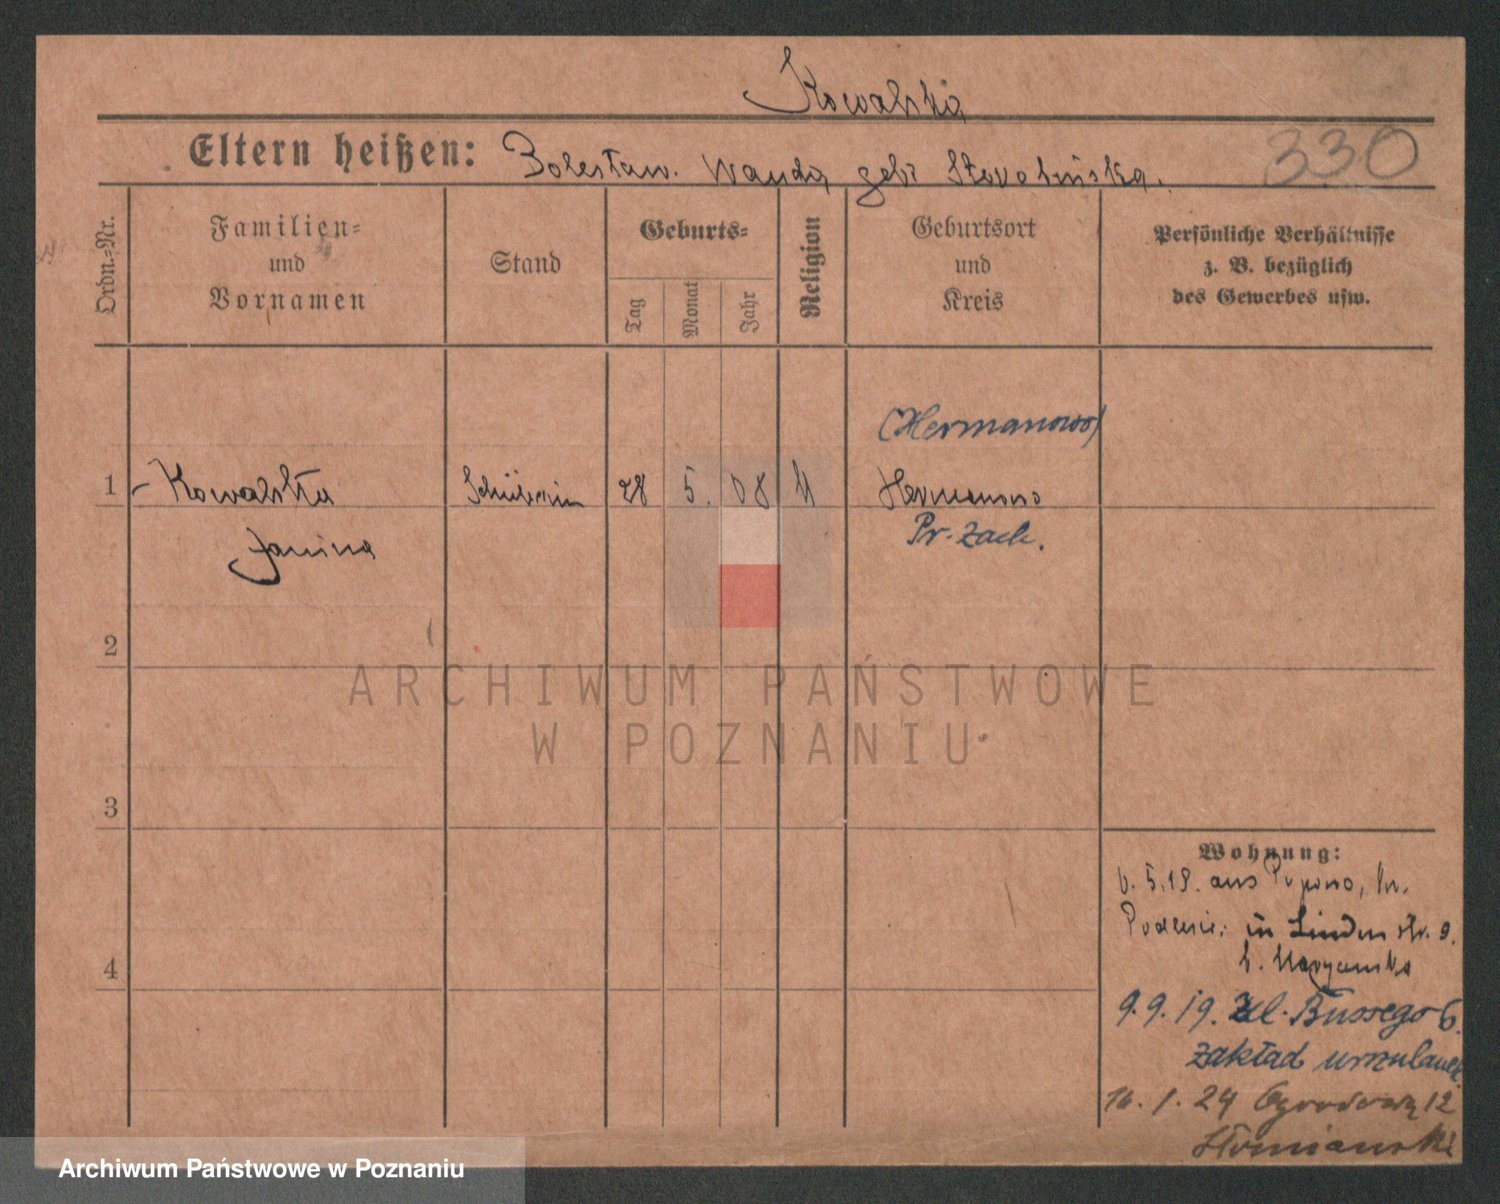 Kowalska
Eltern heißen: Bolesław. Wanda geb.
330
Ordn.-Nr.
Familien-
und
Vornamen
Stand
Geburts-
Tag
Monat
Jahr
Religion
Geburtsort
und
Kreis
Persönliche Verhältnisse
z. B. bezüglich
des Gewerbes usw.
(Hermanowo)
1 Kowalska Schülerin 28 5. 08 Hermanowo
Janina
Pr-Zach.
2
3
4
Wohnung:
5.19. aus
in Linden str. 9.
9.9.19. Bussego 6.
zakład
16. 1. 24 Ogrodowa 12
Słomianski
ARCHIWUM PAŃSTWOWE
W POZNANIU
Archiwum Państwowe w Poznaniu